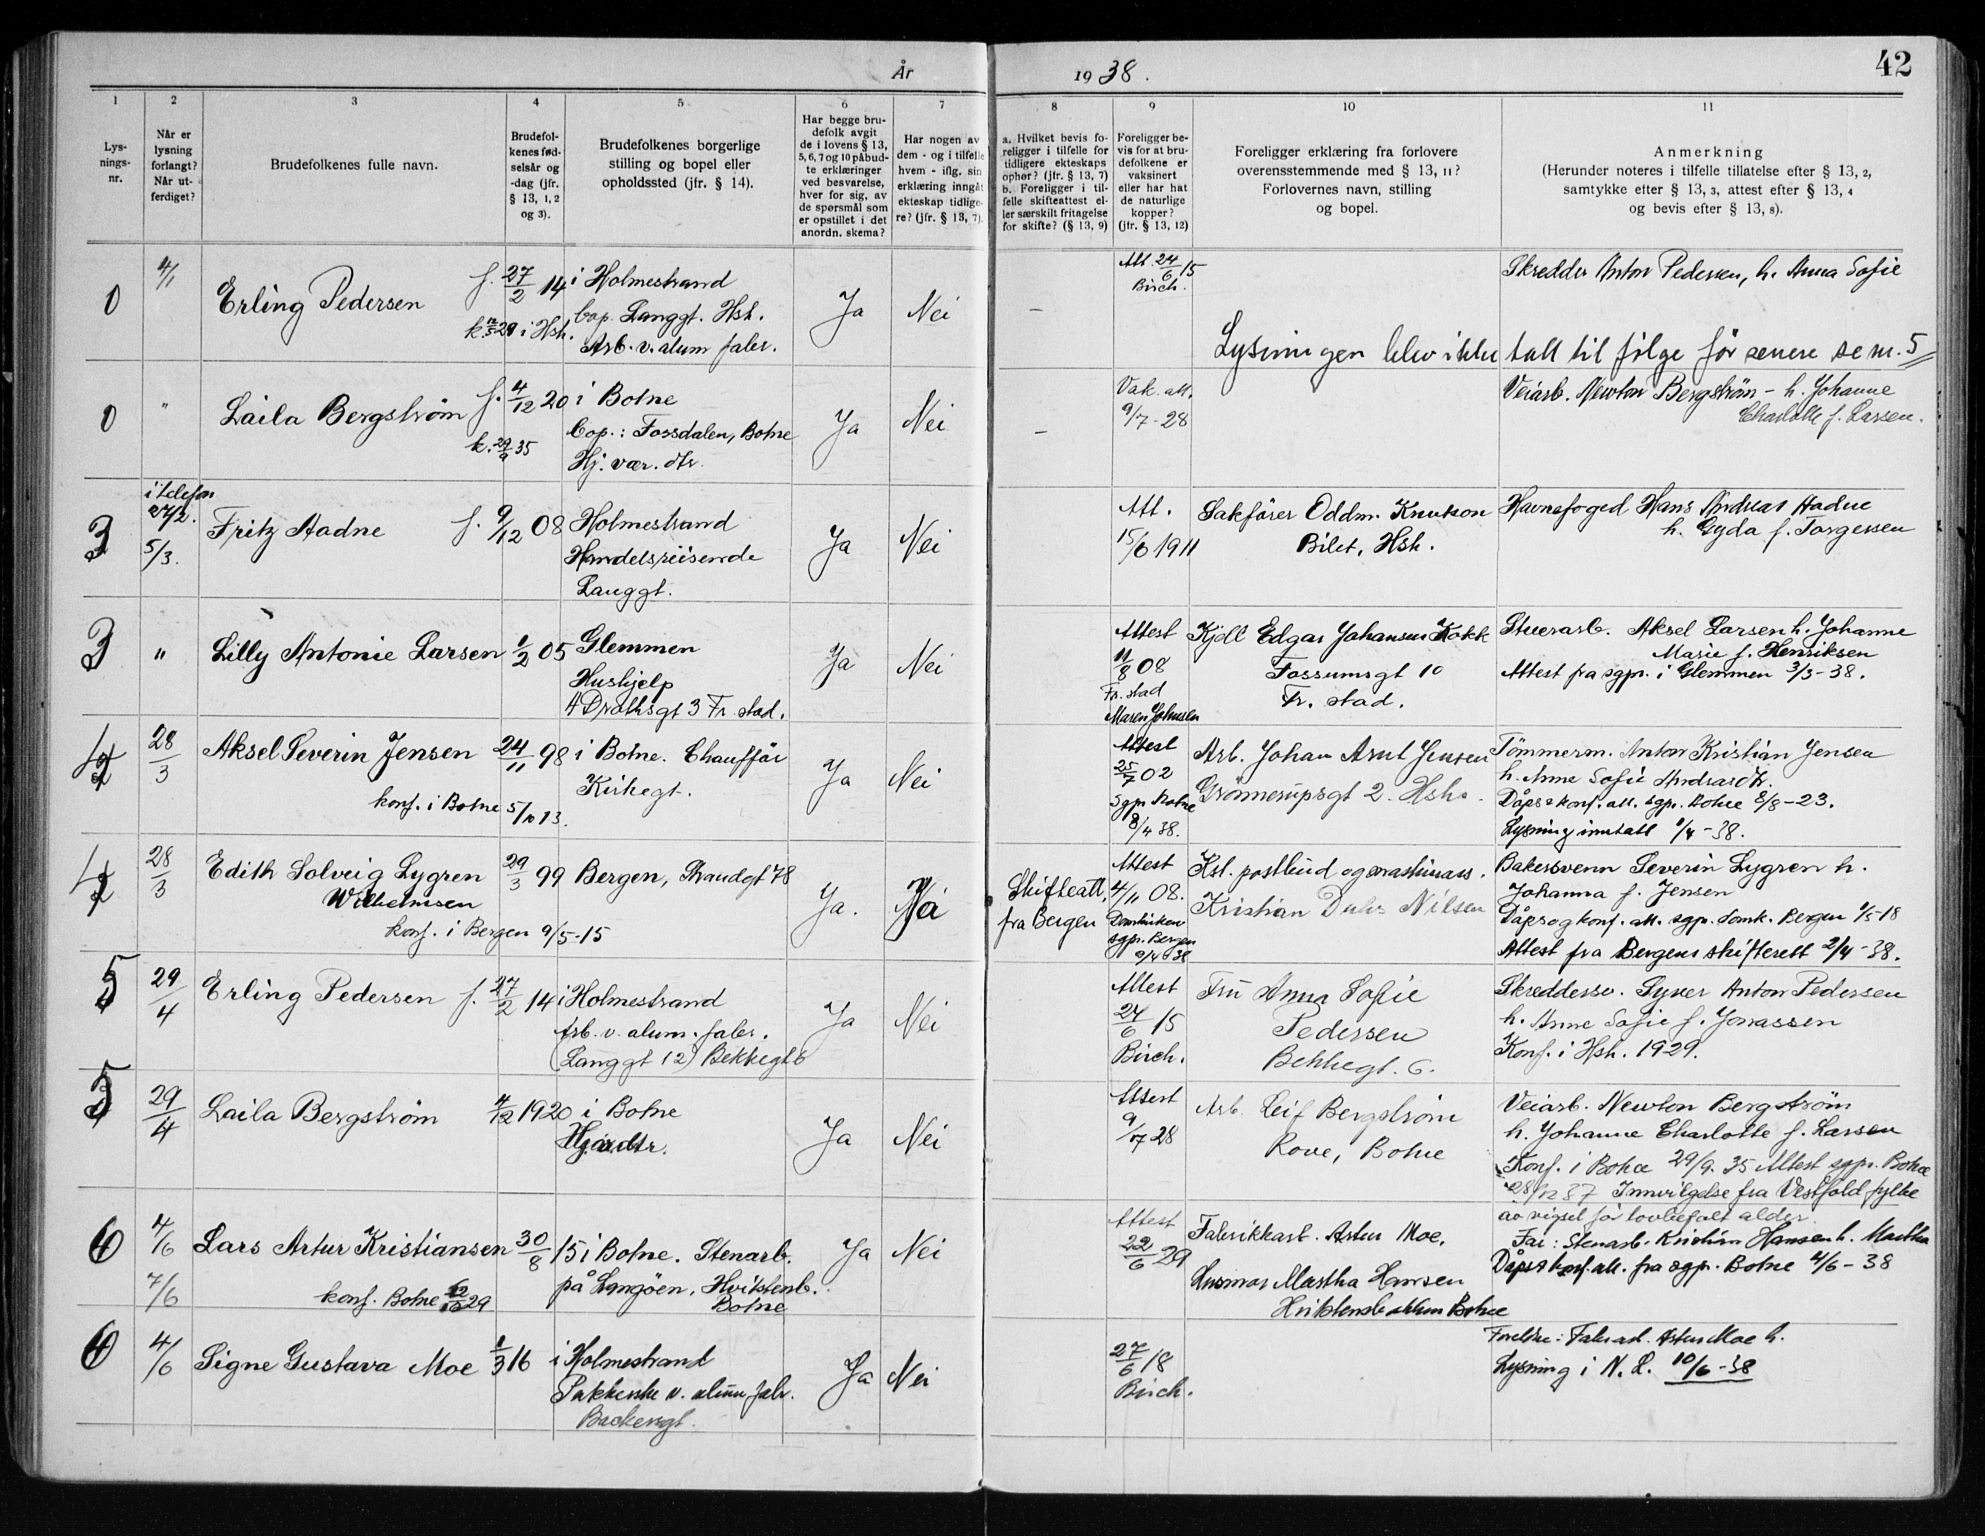 År 1938. 42
1 2 3 4 5 6 7 8 9 10 11
Lys-
nings-
nr.
Når er
lysning
forlangt?
Når ut-
ferdiget?
Brudefolkenes fulle navn.
Brudefol-
kenes fød-
selsår og
-dag (jfr.
§ 13, 1, 2
og 3).
Brudefolkenes borgerlige
stilling og bopel eller
opholdssted (jfr. § 14).
Har begge bru-
defolk avgit
de i lovens § 13,
5, 6, 7 og 10 påbud-
te erklæringer
ved besvarelse,
hver for sig, av
de spørsmål som
er opstillet i det
anordn. skema?
Har nogen av
dem - og i tilfelle
hvem - iflg. sin
erklæring inngåt
ekteskap tidlige-
re? (jfr. § 13, 7).
a. Hvilket bevis fo-
religger i tilfelle for
tidligere ekteskaps
ophør? (jfr. § 13, 7)
b. Foreligger i til-
felle skifteattest el-
ler særskilt fritagelse
for skifte? (§ 13, 9)
Foreligger be-
vis for at bru-
defolkene er
vaksinert
eller har hat
de naturlige
kopper?
(jfr. § 13, 12)
Foreligger erklæring fra forlovere
overensstemmende med § 13, 11?
Forlovernes navn, stilling
og bopel.
Anmerkning
(Herunder noteres i tilfelle tillatelse efter § 13, 2,
samtykke efter § 13, 3, attest efter § 13, 4
og bevis efter § 13, 8).
0
4/1
Erling Pedersen
f. 27/2 14
k. 29 i Hsh.
i Holmestrand
bop. Langgt. Hsh.
Arb. v. alum fabr.
Ja
Nei
-
Att. 24/6 15
Birch.
Skredder Anton Pedersen, h. Anna Sofie
Lysningen blev ikke tatt til følge før senere se nr. 5
0
"
Laila Bergstrøm
f. 4/12 20
k. 29/9 35
i Botne
bop.: Fossdalen, Botne
Hj. vær. dtr.
Ja
Nei
-
Vak. att.
9/7-28
Veiarb. Newton Bergstrøm - h. Johanne
Charlotte f. Larsen.
3
i telefon
27/2.
5/3.
Fritz Aadne
f. 9/12 08
Holmestrand
Handelsreisende
Langgt.
Ja
Nei
Att.
15/6 1911
Sakfører Oddm. Knutson
Bilet, Hsh.
Havnefoged Hans Andreas Aadne
h. Gyda f. Torgersen
3
"
Lilly Antonie Larsen
1/2 05
Glemmen
Hushjelp
Fr. stad.
Ja
Nei
Attest
11/8 08
Fr. stad
Maren Johnsen
Kjell Edgar Johansen Kokk
Fossumsgt 10
Fr. stad.
Stuerarb. Aksel Larsen h. Johanne
Marie f. Henriksen
Attest fra sgpr. i Glemmen 3/3-38.
28/3
Aksel Severin Jensen
konf. i Botne 5/10 13.
24/11 98
i Botne. Chauffør
Kirkegt.
Ja
Nei
Attest
25/7 02
sgpr Botne
8/4 38.
Arb. Johan Arnt Jensen
Grønnerupsgt 2. Hsh.
Tømmerm. Anton Kristian Jensen
h. Anne Sofie
Dåps & konf. att. sgpr. Botne 8/8-23.
Lysning inntatt 1/4-38.
28/3
Edith Solveig Lygren
Wilhelmsen
konf. i Bergen 9/5-15
29/3 99
Bergen, Strandgt 78
Ja.
Nei
Skifteatt.
fra Bergen
Attest
4/11 08.
Domkirken
sgpr. Bergen
9/4 38
Kst. postbud og
Kristian Nilsen
Bakersvenn Severin Lygren h.
Johanna f. Jensen
Dåps og konf. att. sgpr. Domk. Bergen 1/5 18
Attest fra Bergens skifterett 2/4-38.
5
29/4
Erling Pedersen
f. 27/2 14
i Holmestrand
Arb. v. alum. fabr.
(Langgt 12) Bekkegt 6
Ja
Nei
Attest
24/6 15
Birch.
Fru Anna Sofie
Pedersen
Bekkegt. 6.
Skreddersv. Syver Anton Pedersen
h. Anne Sofie f. Jonassen
Konf. i Hsh. 1929.
5
29/4
Laila Bergstrøm
4/12 1920
i Botne
Ja
Nei
Attest
9/7 28
Arb. Leif Bergstrøm
Rove, Botne
Veiarb. Newton Bergstrøm
h. Johanne Charlotte f. Larsen
Konf. i Botne 29/9. 35 Attest sgpr. Botne
28/12 37 Innvilgelse fra Vestfold fylke
av vigsel før lovbefalt alder
6
4/6
7/6
Lars Artur Kristiansen
konf. Botne 29
30/8 15
i Botne. Stenarb.
på Langøen, Hvitstenb.
Botne
Ja
Nei
Attest
22/6 29
Fabrikkarb. Artur Moe.
Husmor Martha Hansen
Far: Stenarb. Kristian Hansen h. Martha
Dåps & konf. att. fra sgpr. Botne 4/6-38
6
4/6
Signe Gustava Moe
1/3 16
i Holmestrand
Pakkerske v. alum fabr.
Backengt.
Ja
Nei
27/6 18
Birch.
Foreldre: Fabr.arb. Artur Moe h.
Lysning i N. L. 10/6-38